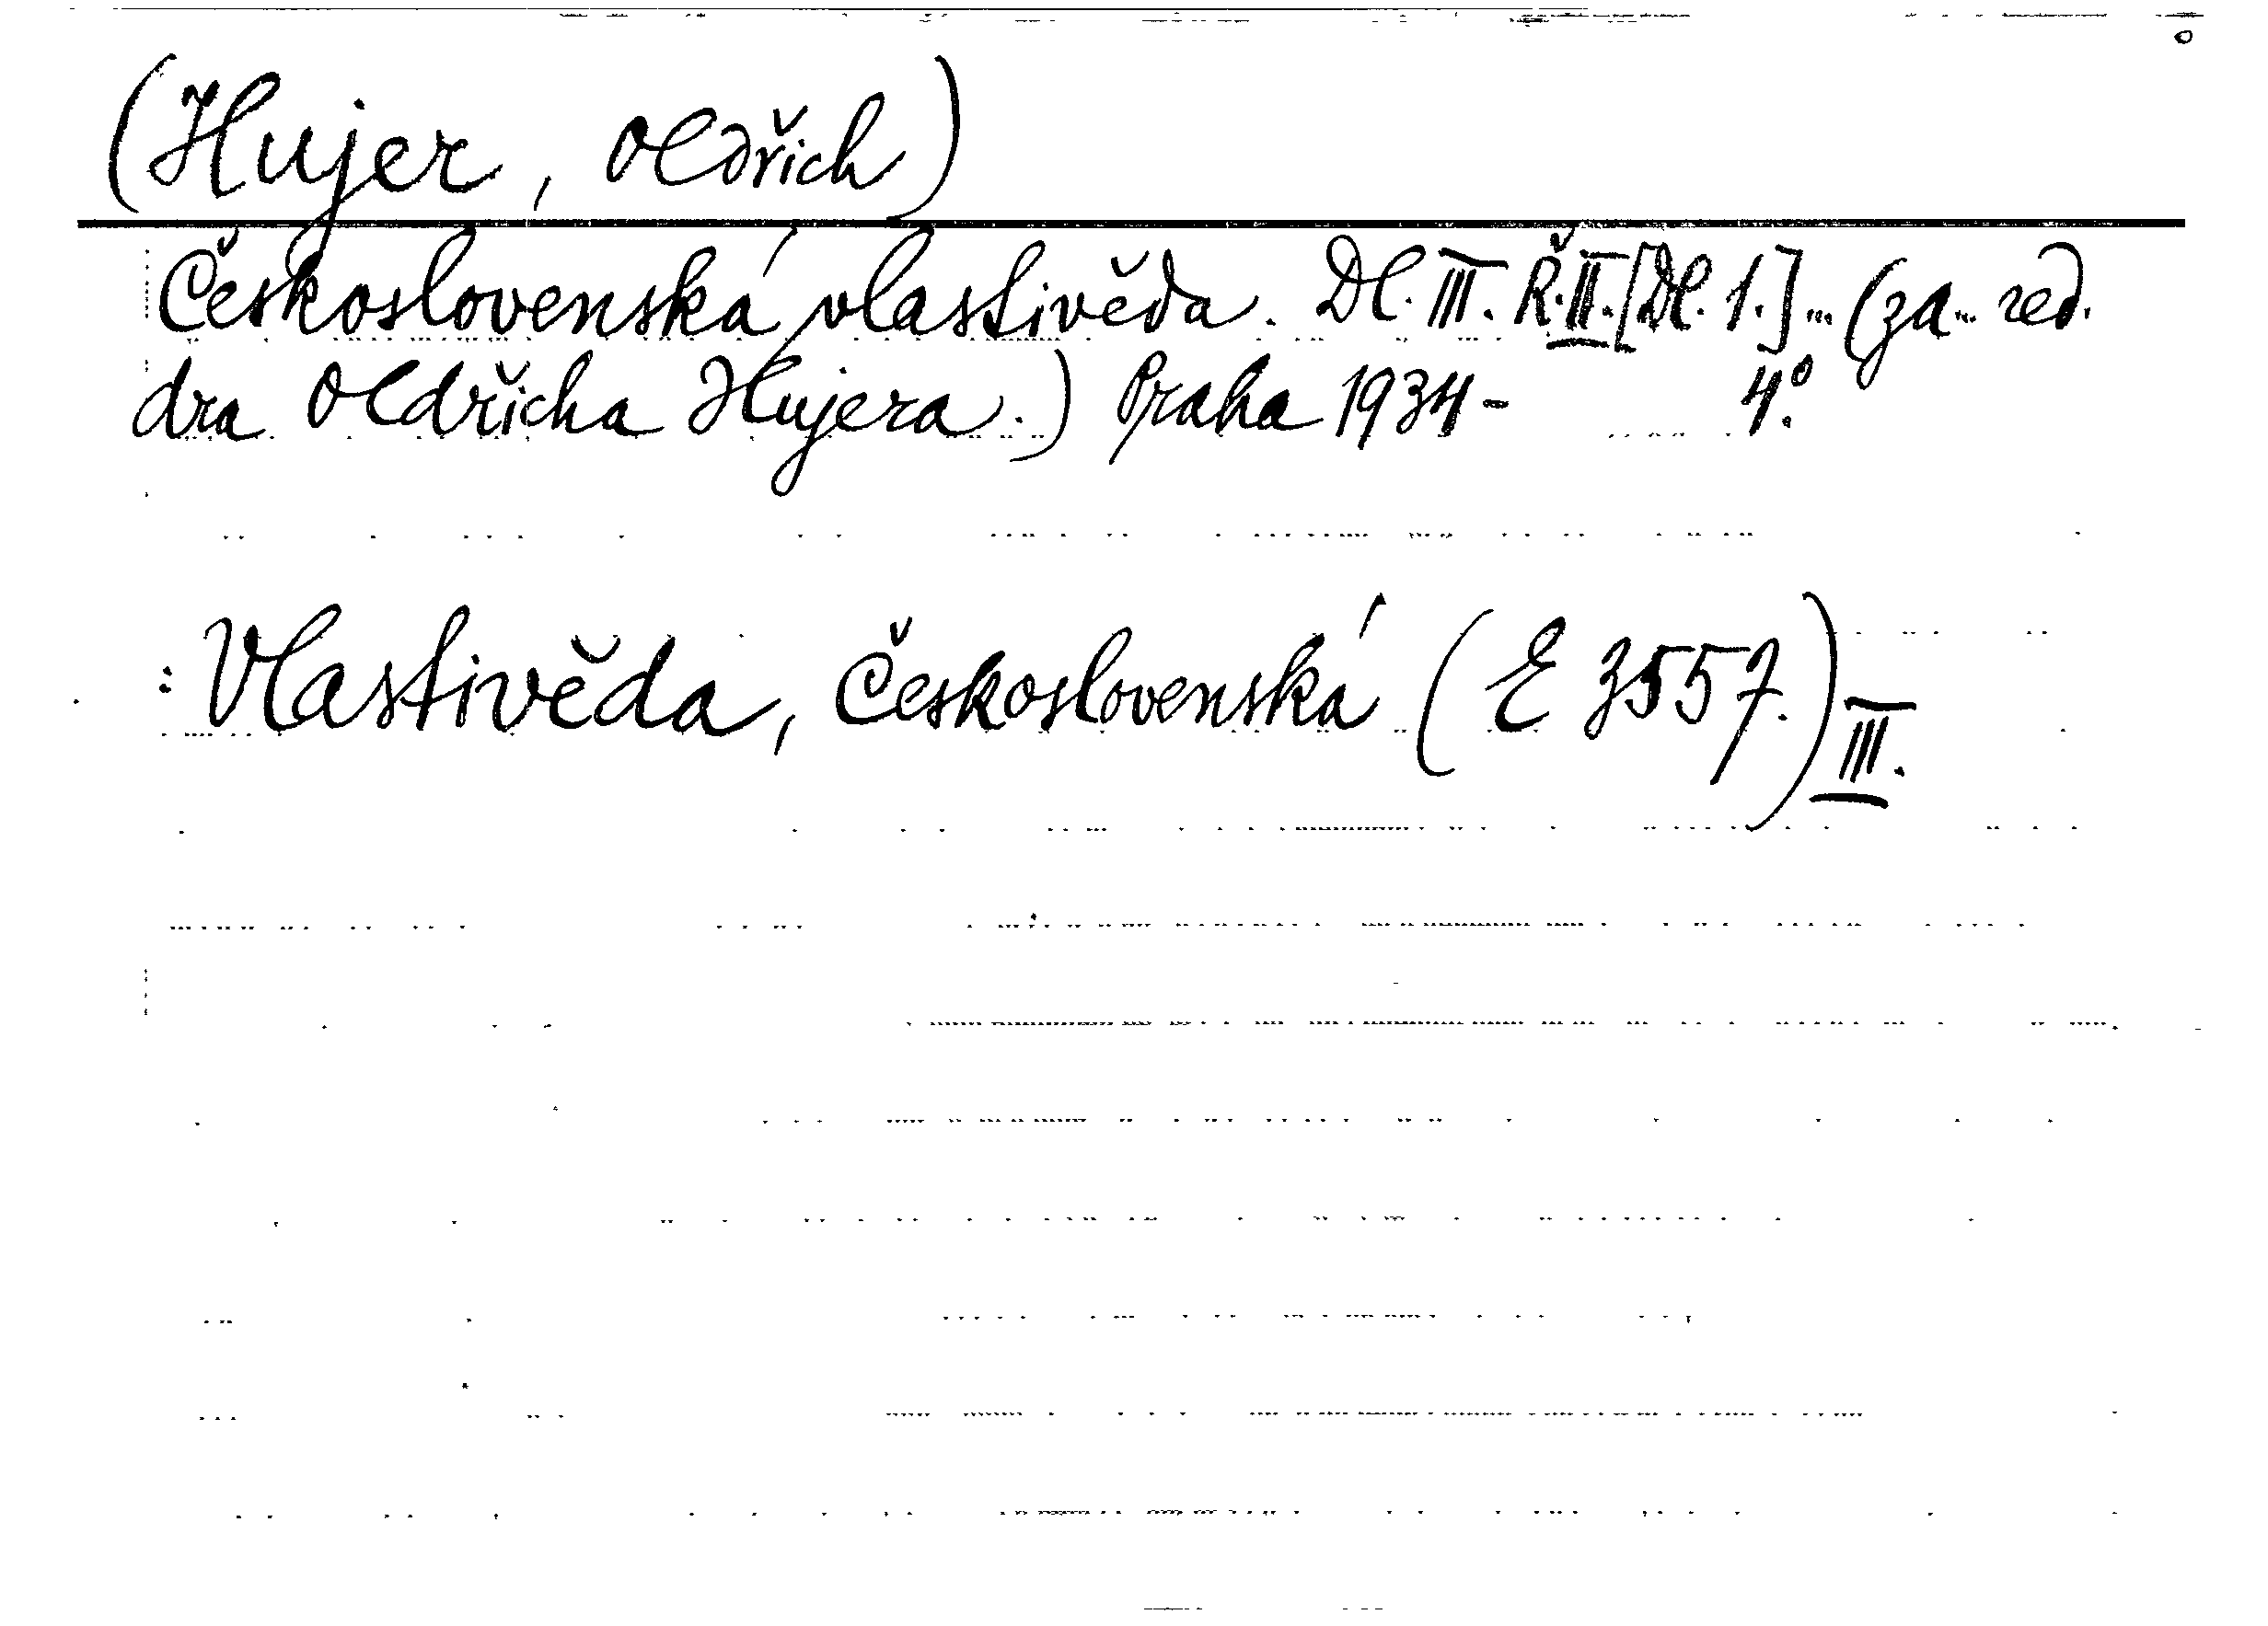 (Hujer, Oldřich)
Československá vlastivěda. Dl. III. Ř.II.[Dl. 1.]... (za... red.
dra Oldřicha Hujera.) Praha 1934- 4.°
: Vlastivěda, Československá (E 3557.) III.